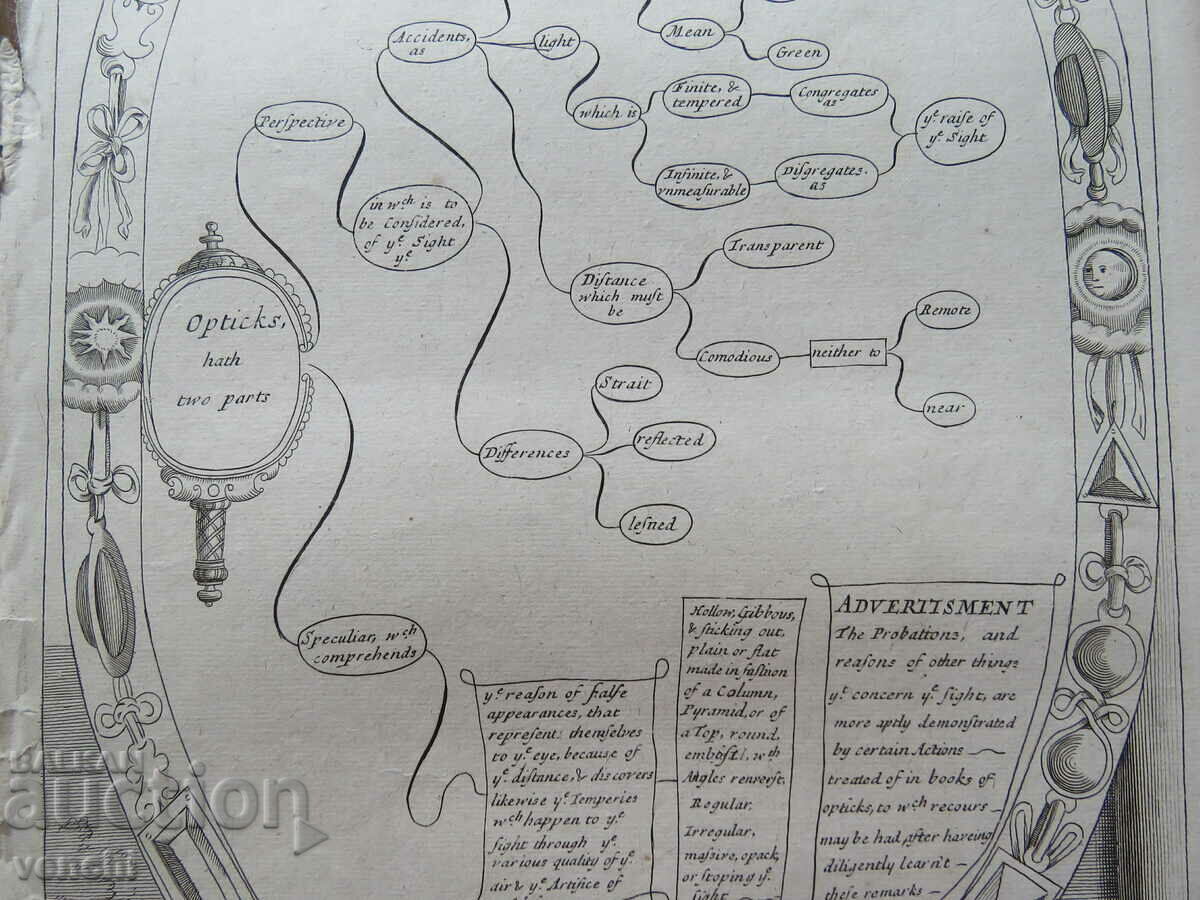 Accidents,
as
light
Mean
Green
which is
Finite, &
tempered
Congregates
as
Infinite, &
vnmeasurable
Disgregates.
as
yͤ raise of
yͤ Sight
Perſpective
in wͨʰ is to
be Conſidered,
of yͤ Sight
yͤ
Opticks,
hath
two parts
Diſtance
which muſt
be
Tranſparent
Comodious
neither to
Remote
near
Differences
Strait
reflected
leſned
Speculiar, wͨʰ
comprehends
yͤ reaſon of falſe
appearances, that
repreſent themſelves
to yͤ eye, becauſe of
yͤ diſtance, & discovers
likewise yͤ Temperies
wͨʰ happen to yͤ
ſight through yͤ
various quality of yͤ
air & yͤ Artifice of
Hollow, Gibbous,
& ſticking out,
plain or flat
made in faſhion
of a Column,
Pyramid, or of
a Top, round,
wᵗʰ
Angles renverst.
Regular,
Irregular,
maſſive, opack,
or ſtoping yͤ
ſight
ADVERTISMENT
The Probations, and
reaſons of other things
yͭ concern yͤ ſight, are
more aptly demonſtrated
by certain Actions
treated of in books of
opticks, to wͨʰ recours
may be had, after haveing
diligently learn't
theſe remarks
BALKAN
auction
vencfil